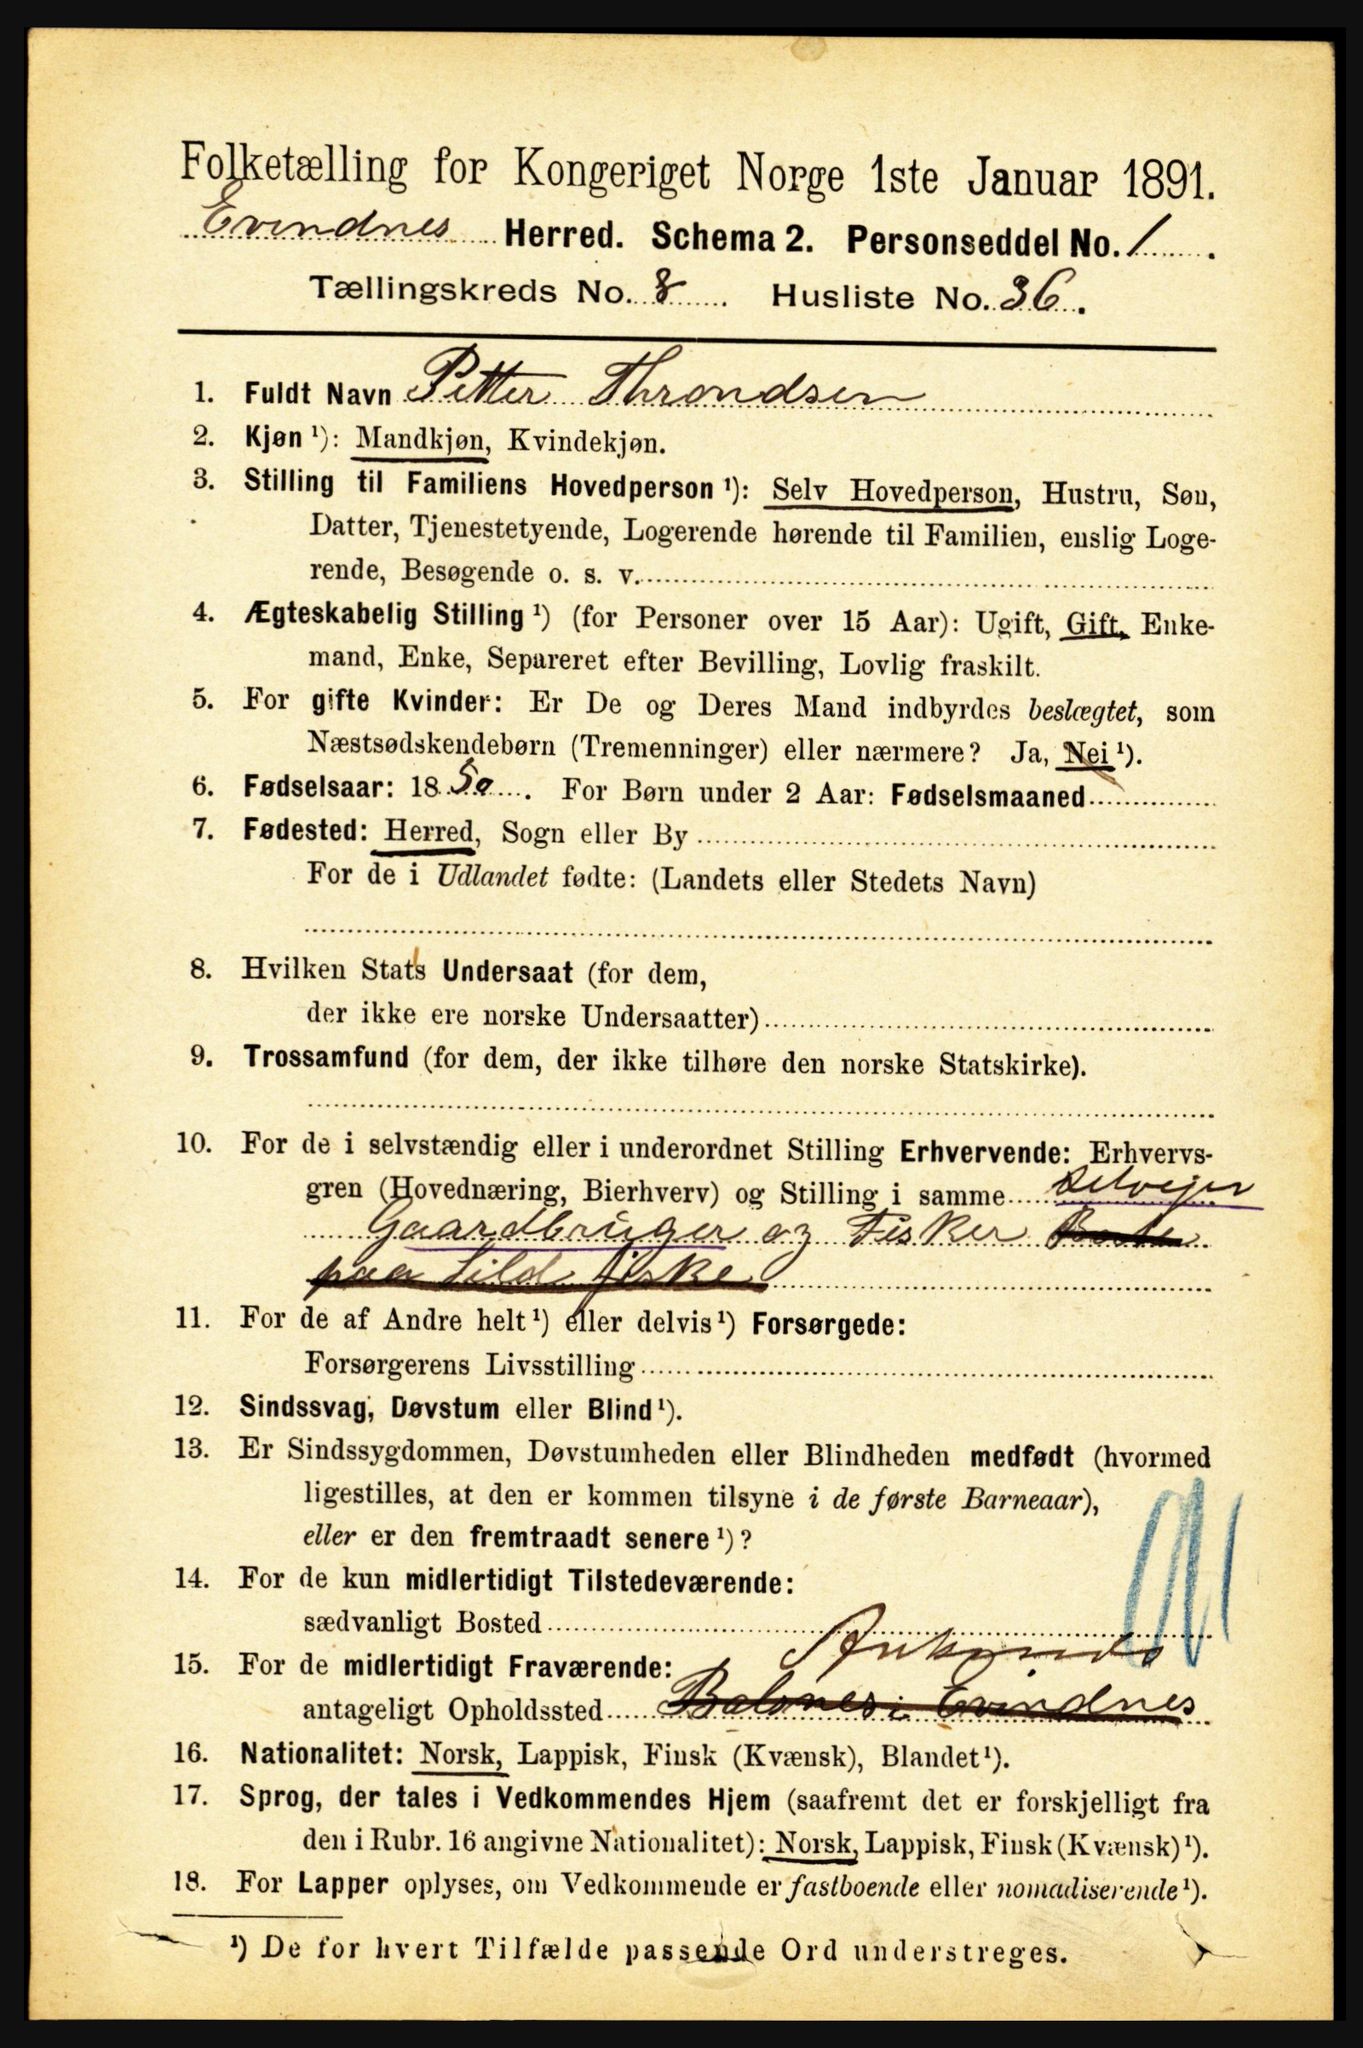 Folketælling for Kongeriget Norge 1ste Januar 1891.
Evindnes Herred. Schema 2. Personseddel No. 1.
Tællingskreds No. 8. Husliste No. 36.
1. Fuldt Navn Petter Throndsen
2. Kjøn ¹): Mandkjøn, Kvindekjøn.
3. Stilling til Familiens Hovedperson ¹): Selv Hovedperson, Hustru, Søn,
Datter, Tjenestetyende, Logerende hørende til Familien, enslig Loge-
rende, Besøgende o. s. v.
4. Ægteskabelig Stilling ¹) (for Personer over 15 Aar): Ugift, Gift, Enke-
mand, Enke, Separeret efter Bevilling, Lovlig fraskilt.
5. For gifte Kvinder: Er De og Deres Mand indbyrdes beslægtet, som
Næstsødskendebørn (Tremenninger) eller nærmere? Ja, Nei ¹).
6. Fødselsaar: 1850. For Børn under 2 Aar: Fødselsmaaned
7. Fødested: Herred, Sogn eller By
For de i Udlandet fødte: (Landets eller Stedets Navn)
8. Hvilken Stats Undersaat (for dem,
der ikke ere norske Undersaatter)
9. Trossamfund (for dem, der ikke tilhøre den norske Statskirke).
10. For de i selvstændig eller i underordnet Stilling Erhvervende: Erhvervs-
gren (Hovednæring, Bierhverv) og Stilling i samme Selveier
Gaardbruger og Fisker
paa Sild fiske
11. For de af Andre helt ¹) eller delvis ¹) Forsørgede:
Forsørgerens Livsstilling
12. Sindssvag, Døvstum eller Blind ¹).
13. Er Sindssygdommen, Døvstumheden eller Blindheden medfødt (hvormed
ligestilles, at den er kommen tilsyne i de første Barneaar),
eller er den fremtraadt senere ¹)?
14. For de kun midlertidigt Tilstedeværende:
sædvanligt Bosted
15. For de midlertidigt Fraværende:
antageligt Opholdssted i Evindnes
16. Nationalitet: Norsk, Lappisk, Finsk (Kvænsk), Blandet ¹).
17. Sprog, der tales i Vedkommendes Hjem (saafremt det er forskjelligt fra
den i Rubr. 16 angivne Nationalitet): Norsk, Lappisk, Finsk (Kvænsk) ¹).
18. For Lapper oplyses, om Vedkommende er fastboende eller nomadiserende ¹).
¹) De for hvert Tilfælde passende Ord understreges.